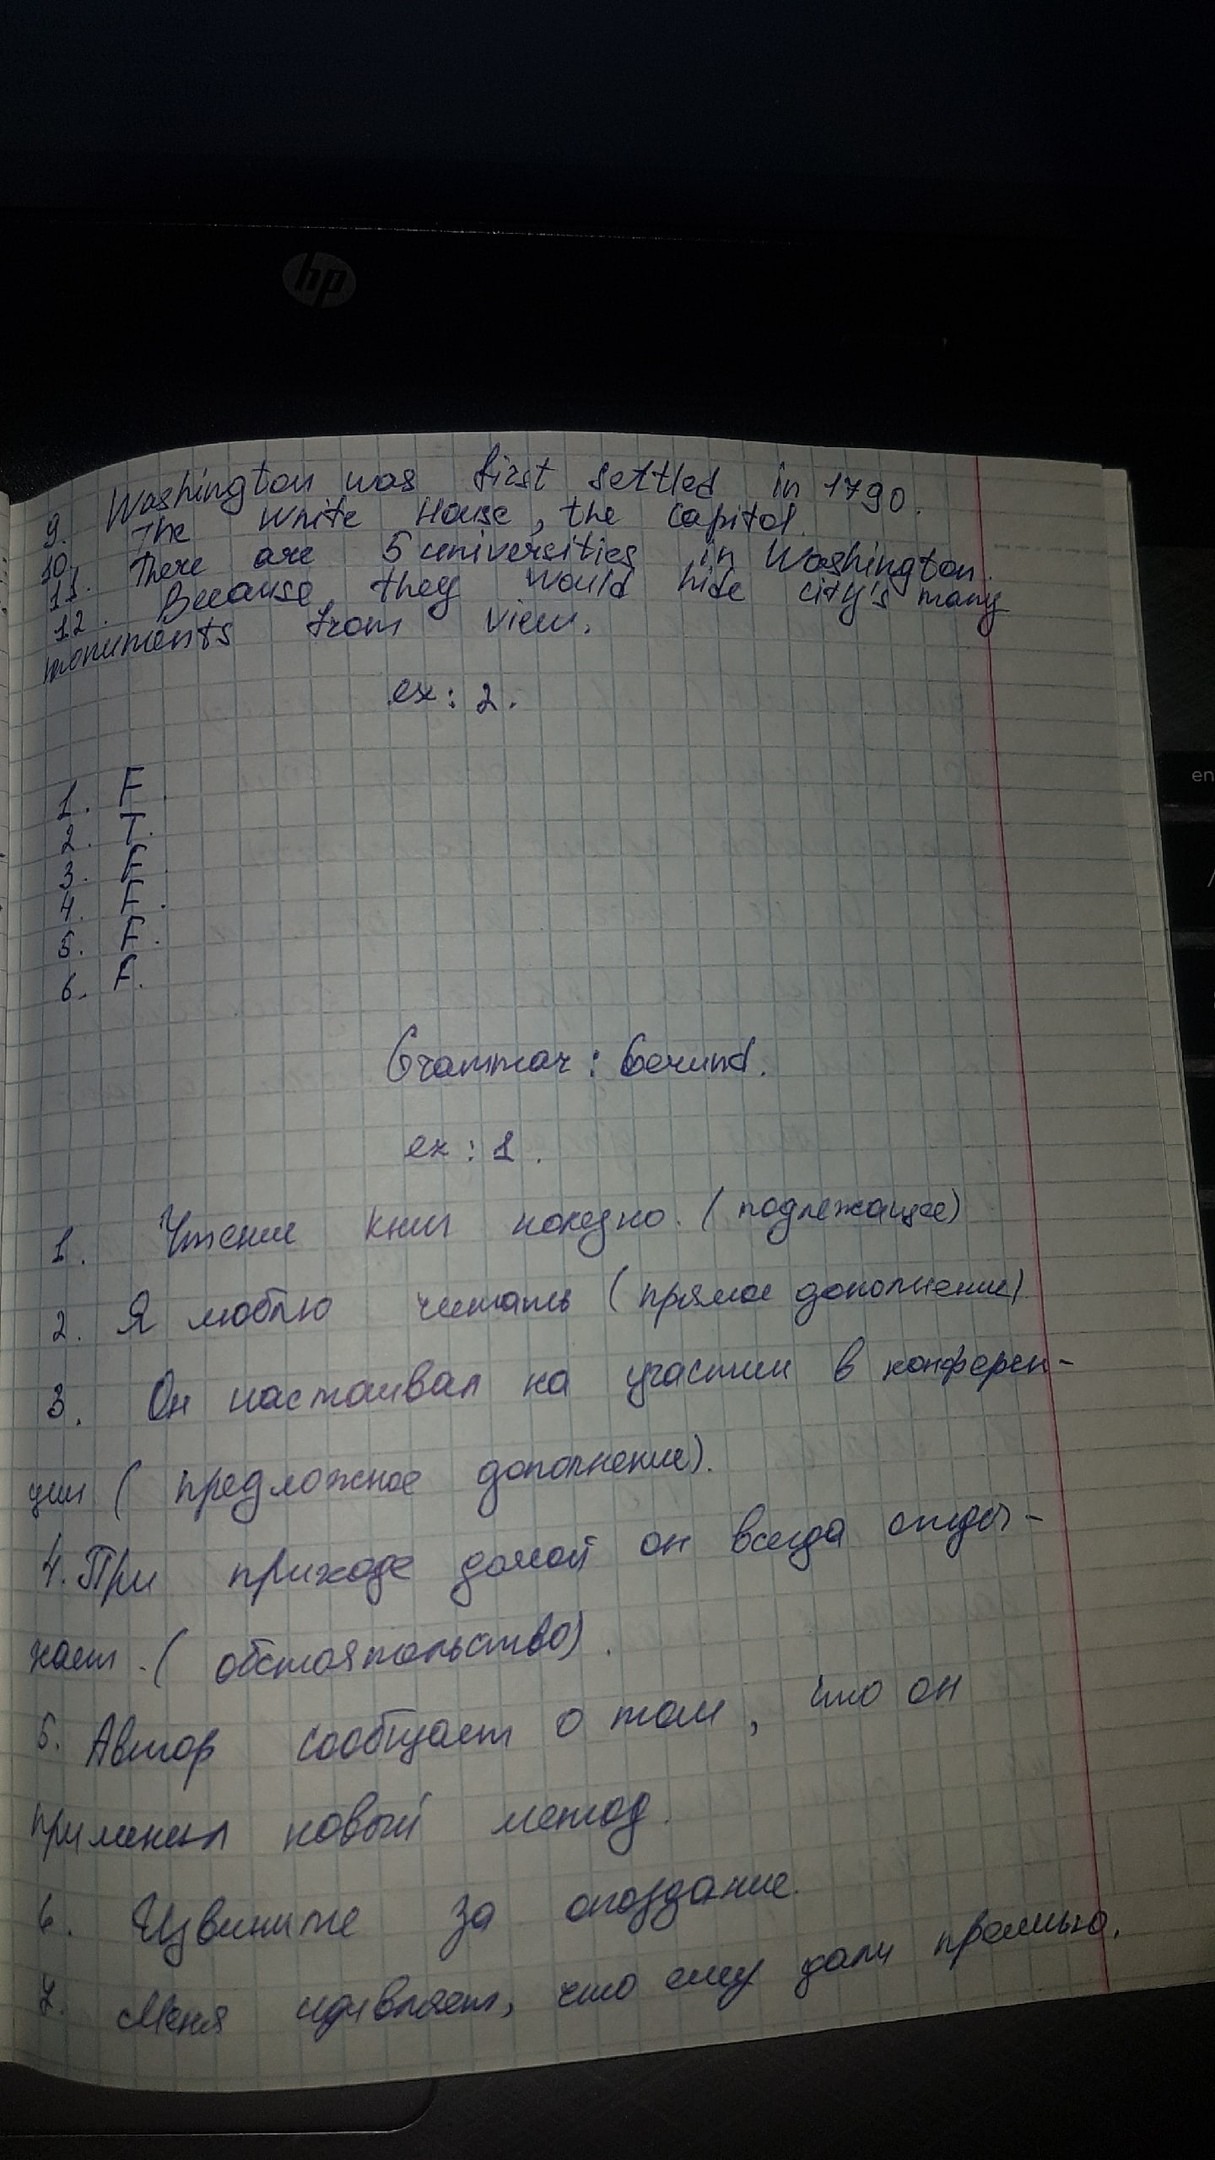 hp
9. Washington was first settled in 1790.
10. The White House, the Capitol.
11. There are 5 universities in Washington.
12. Because they would hide city's many
monuments from view.
ex: 2.
1. F.
2. T.
3. F.
4. F.
5. F.
6. F.
Grammar: Gerund.
ex: 1.
1. Чтение книг полезно. (подлежащее)
2. Я люблю читать (прямое дополнение)
3. Он настаивал на участии в конферен-
ции (предложное дополнение).
4. При приходе домой он всегда отды-
хает. (обстоятельство).
5. Автор сообщает о том, что он
применил новый метод.
6. Извините за опоздание.
7. Меня удивляет, что ему дали премию.
en